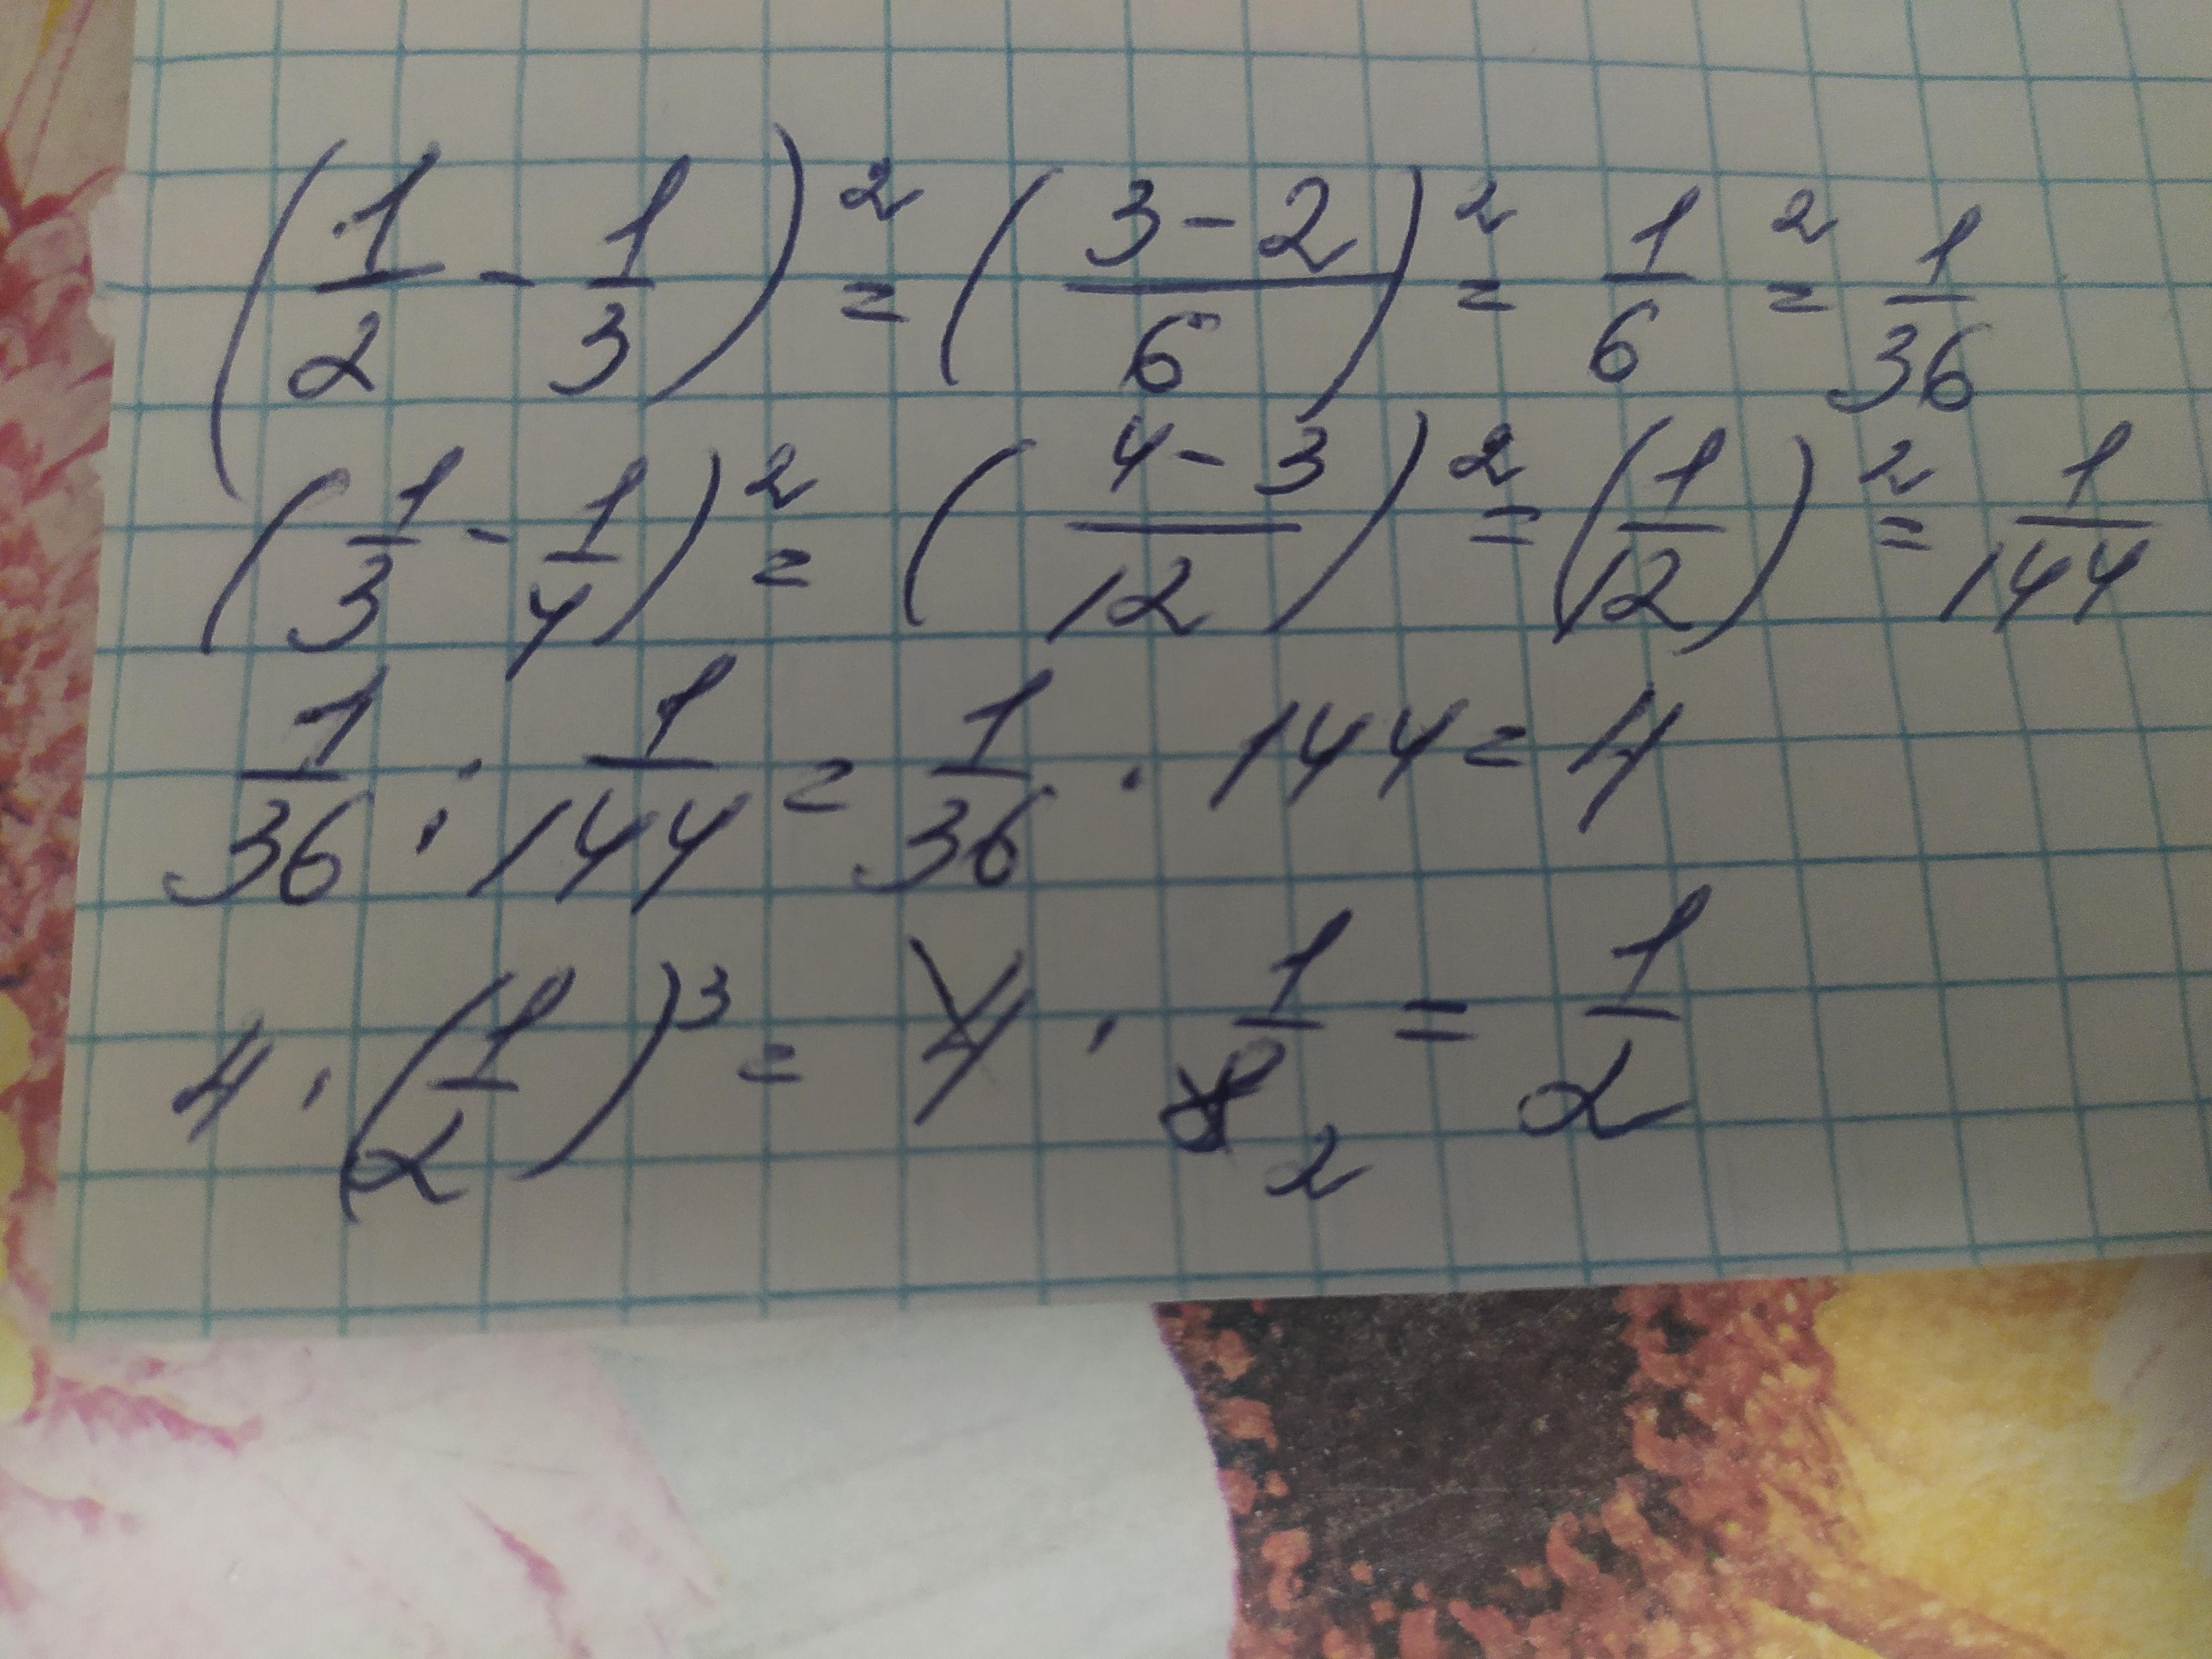 (1/2 - 1/3)² = (3-2/6)² = 1/6² = 1/36
(1/3 - 1/4)² = (4-3/12)² = (1/12)² = 1/144
1/36 : 1/144 = 1/36 · 144 = 4
4 · (1/2)³ = 4 · 1/8 2 = 1/2